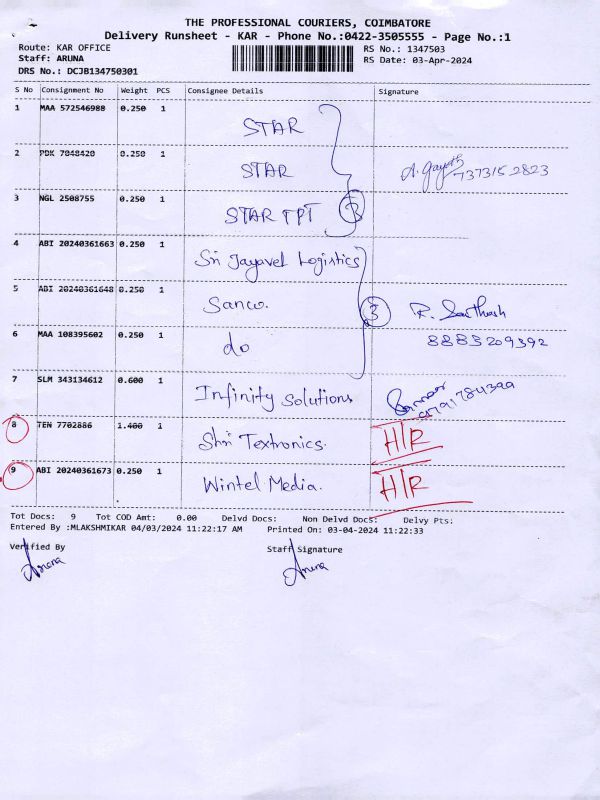 THE PROFESSIONAL COURIERS, COIMBATORE
Delivery Runsheet - KAR - Phone No.:0422-3505555 - Page No.:1
Route: KAR OFFICE RS No.: 1347503
Staff: ARUNA RS Date: 03-Apr-2024
DRS No.: DCJB134750301
S No Consignment No Weight PCS Consignee Details Signature
1 MAA 572546988 0.250 1 STAR
2 PDK 7048420 0.250 1 STAR 7373152823
3 NGL 2508755 0.250 1 STAR TPT 3
4 ABI 20240361663 0.250 1 Sri Jayavel Logistics
5 ABI 20240361648 0.250 1 Sanco. 3 R. Santhosh
6 MAA 108395602 0.250 1 do 8883209392
7 SLM 343134612 0.600 1 Infinity Solutions
8 TEN 7702886 1.400 1 Shri Textronics. H/R
9 ABI 20240361673 0.250 1 Wintel Media. H/R
Tot Docs: 9 Tot COD Amt: 0.00 Delvd Docs: Non Delvd Docs: Delvy Pts:
Entered By :MLAKSHMIKAR 04/03/2024 11:22:17 AM Printed On: 03-04-2024 11:22:33
Verified By Staff Signature
Aruna Aruna